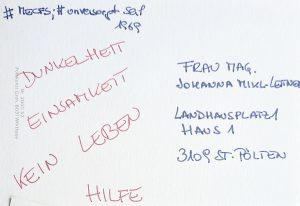 #MECFS; #unversorgt seit
1969
DUNKELHEIT
EINSAMKEIT
KEIN LEBEN
HILFE
FRAU MAG.
JOHANNA MIKL-LEITNER
LANDHAUSPLATZ 1
HAUS 1
3109 ST. PÖLTEN